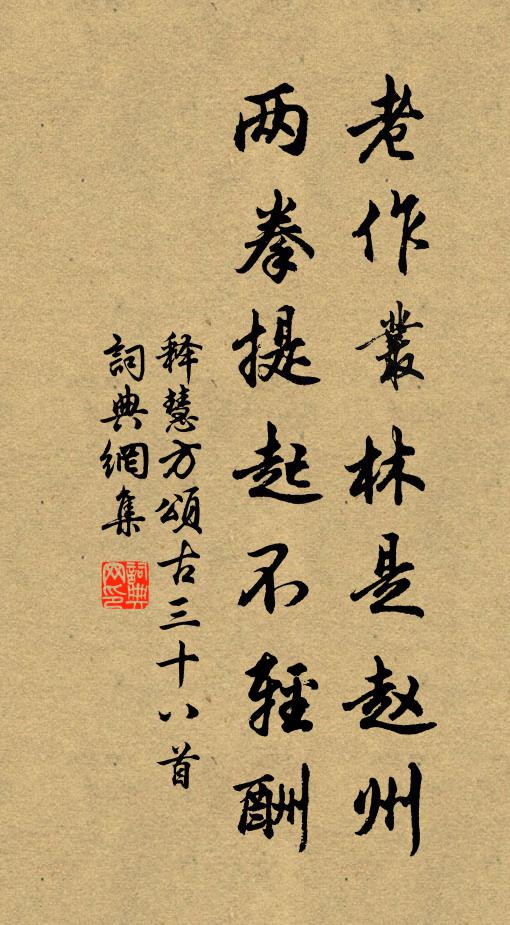 老作叢林是赵州
两拳提起不輕酬
释慧方頌古三十八首
詞典網集
詞典网印